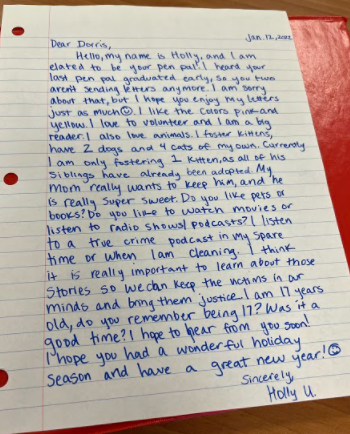 Jan. 12, 2022
Dear Dorris,
Hello, my name is Holly, and I am
elated to be your pen pal! I heard your
last pen pal graduated early, so you two
aren't sending letters anymore. I am sorry
about that, but I hope you enjoy my letters
just as much☺. I like the colors pink and
yellow. I love to volunteer and I am a big
reader! I also love animals. I foster kittens,
have 2 dogs and 4 cats of my own. Currently
I am only fostering 1 kitten, as all of his
siblings have already been adopted. My
mom really wants to keep him, and he
is really super sweet. Do you like pets or
books? Do you like to watch movies or
listen to radio shows/podcasts? I listen
to a true crime podcast in my spare
time or when I am cleaning. I think
it is really important to learn about those
stories so we can keep the victims in our
minds and bring them justice. I am 17 years
old, do you remember being 17? Was it a
good time? I hope to hear from you soon!
I hope you had a wonderful holiday
season and have a great new year! ☺
Sincerely,
Holly U.